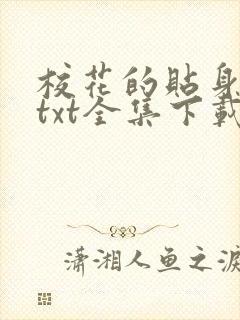 校花的貼身
txt全集下載
瀟湘人鱼之淚